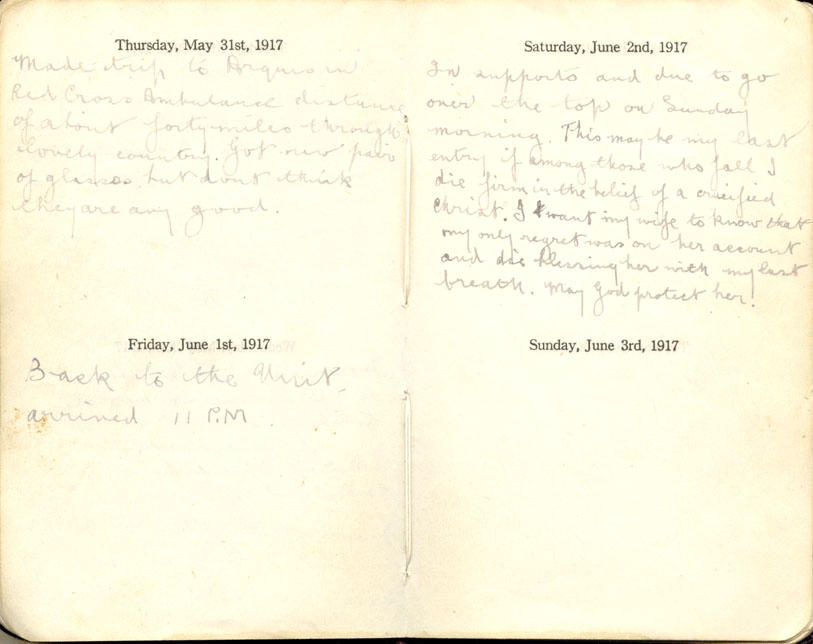 Thursday, May 31st, 1917
Made trip to Arques in
Red Cross Ambulance distance
of about forty miles through
lovely country. Got new pair
of glasses but dont think
they are any good.
Friday, June 1st, 1917
Back to the Unit,
arrived 11 P.M
Saturday, June 2nd, 1917
In supports and due to go
over the top on Sunday
morning. This may be my last
entry if among those who fall I
die firm in the belief of a crucified
Christ. I want my wife to know that
my only regret was on her account
and die blessing her with my last
breath. May God protect her!
Sunday, June 3rd, 1917